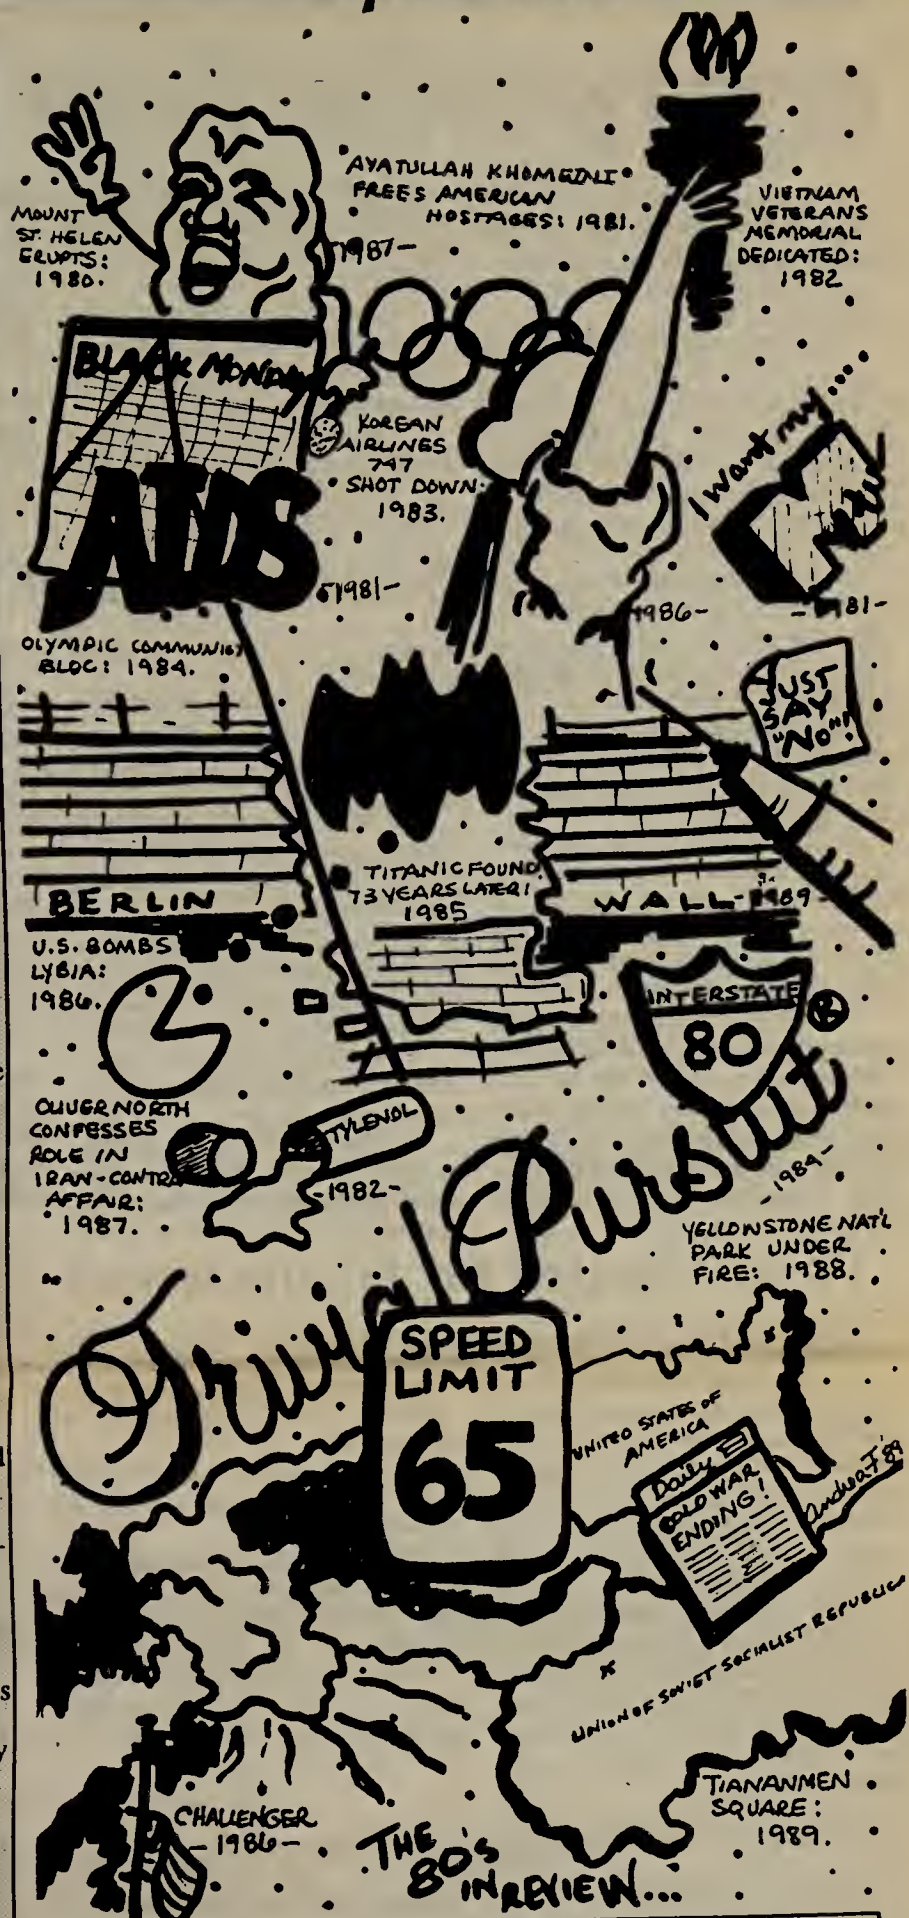 AYATULLAH KHOMEINI
FREES AMERICAN
HOSTAGES: 1981.
MOUNT
ST. HELEN
ERUPTS:
1980.
VIETNAM
VETERANS
MEMORIAL
DEDICATED:
1982
-1987-
BLACK MONDAY
KOREAN
AIRLINES
747
SHOT DOWN:
1983.
I want my...
MTV
AIDS
-1981-
-1986-
-1981-
OLYMPIC COMMUNIST
BLOC: 1984.
JUST
SAY
"NO"!
TITANIC FOUND
73 YEARS LATER!
1985
BERLIN
WALL-1989-
U.S. BOMBS
LYBIA:
1986.
INTERSTATE
80
®
OLIVER NORTH
CONFESSES
ROLE IN
IRAN-CONTRA
AFFAIR:
1987.
TYLENOL
-1982-
Trivial Pursuit
-1984-
YELLOWSTONE NAT'L
PARK UNDER
FIRE: 1988.
SPEED
LIMIT
65
UNITED STATES OF
AMERICA
Daily
COLD WAR
ENDING!
Andrea F. '89
UNION OF SOVIET SOCIALIST REPUBLIC
CHALLENGER
-1986-
TIANANMEN
SQUARE:
1989.
THE
80's
IN REVIEW...